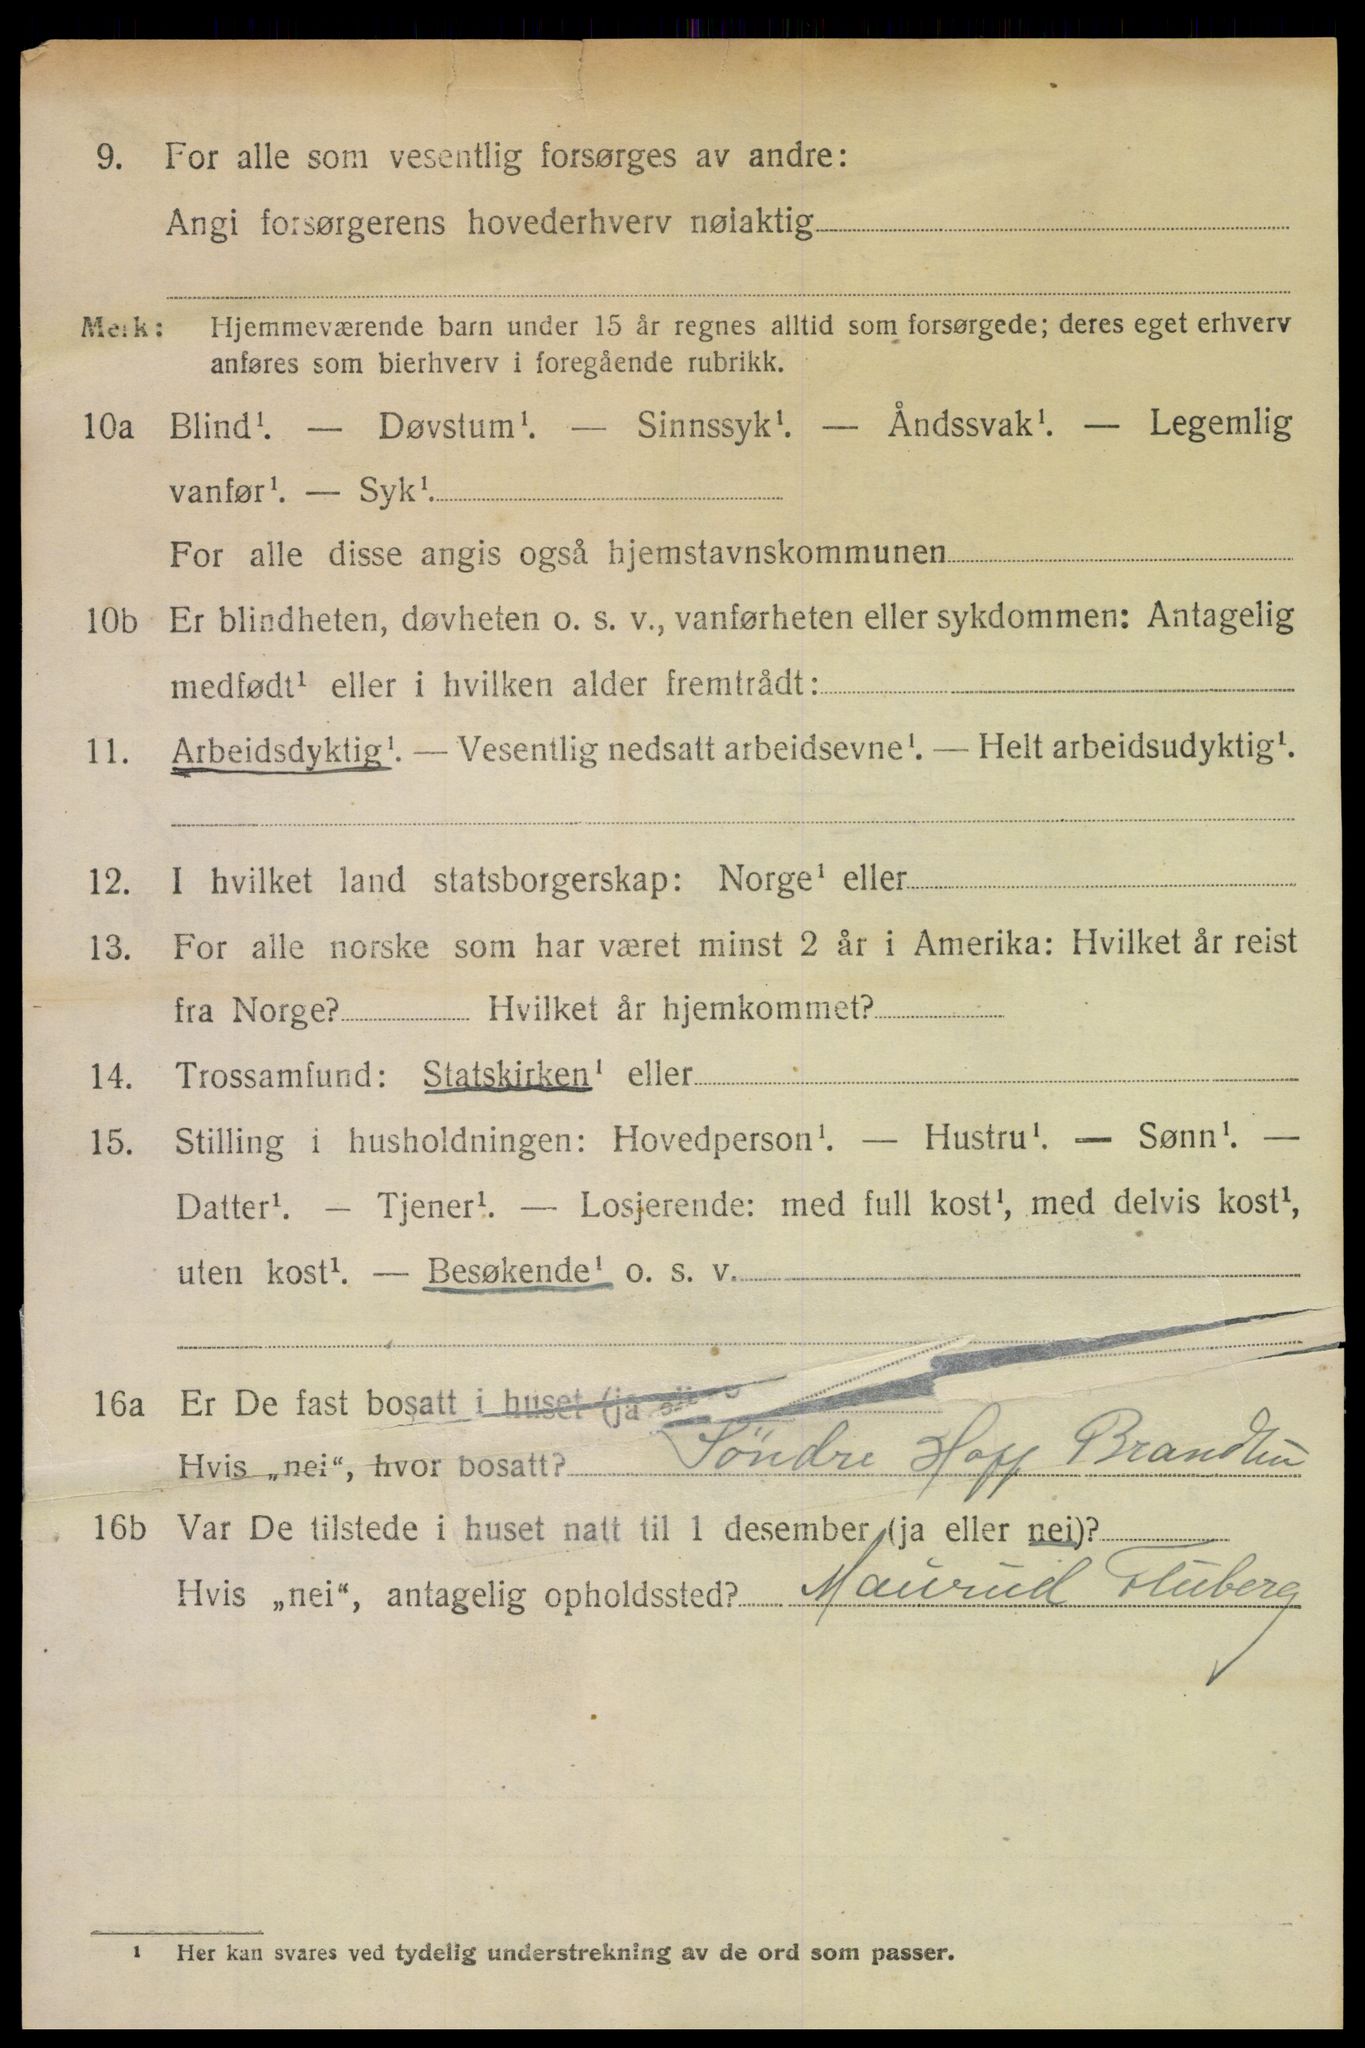 9. For alle som vesentlig forsørges av andre:
Angi forsørgerens hovederhverv nøiaktig
Merk: Hjemmeværende barn under 15 år regnes alltid som forsørgede; deres eget erhverv
anføres som bierhverv i foregående rubrikk.
10a Blind¹. — Døvstum¹. — Sinnssyk¹. — Åndssvak¹. — Legemlig
vanfør¹. — Syk¹.
For alle disse angis også hjemstavnskommunen
10b Er blindheten, døvheten o. s. v., vanførheten eller sykdommen: Antagelig
medfødt¹ eller i hvilken alder fremtrådt:
11. Arbeidsdyktig¹. — Vesentlig nedsatt arbeidsevne¹. — Helt arbeidsudyktig¹.
12. I hvilket land statsborgerskap: Norge¹ eller
13. For alle norske som har været minst 2 år i Amerika: Hvilket år reist
fra Norge? Hvilket år hjemkommet?
14. Trossamfund: Statskirken¹ eller
15. Stilling i husholdningen: Hovedperson¹. — Hustru¹. — Sønn¹. —
Datter¹. — Tjener¹. — Losjerende: med full kost¹, med delvis kost¹,
uten kost¹. — Besøkende¹ o. s. v.
16a Er De fast bosatt i huset (ja
Hvis „nei“, hvor bosatt? Söndre Hoff Brandbu
16b Var De tilstede i huset natt til 1 desember (ja eller nei)?
Hvis „nei“, antagelig opholdssted? Maurud Fluberg
¹ Her kan svares ved tydelig understrekning av de ord som passer.